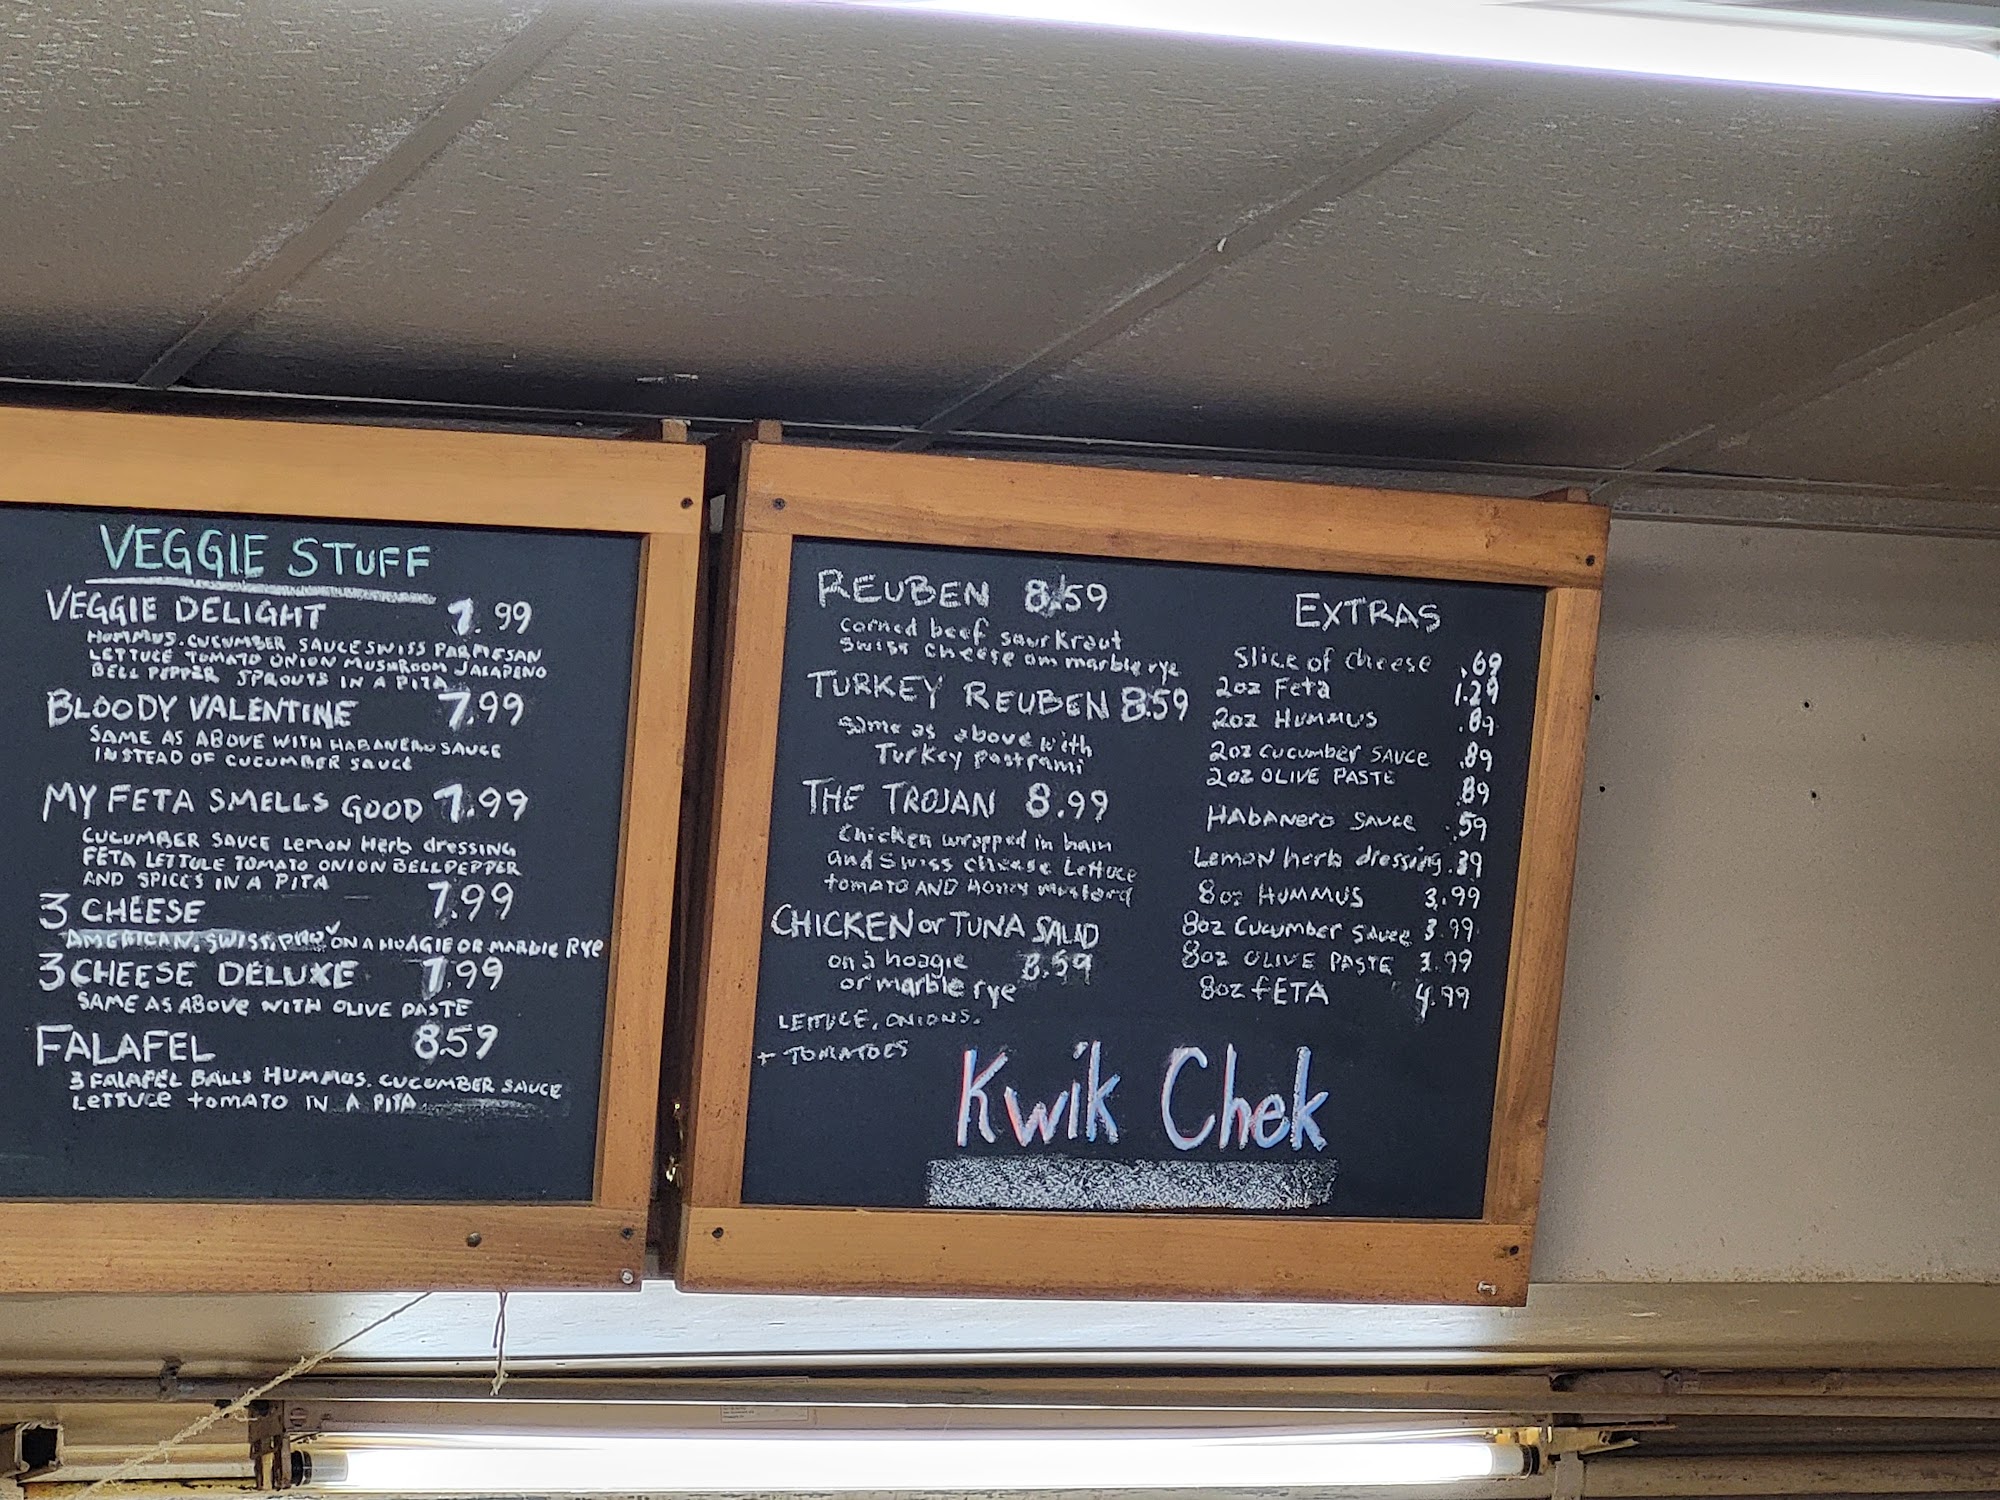 VEGGIE STUFF
VEGGIE DELIGHT 7.99
HUMMUS. CUCUMBER SAUCE SWISS PARMESAN
LETTUCE TOMATO ONION MUSHROOM JALAPENO
BELL PEPPER SPROUTS IN A PITA
BLOODY VALENTINE 7.99
SAME AS ABOVE WITH HABANERO SAUCE
INSTEAD OF CUCUMBER SAUCE
MY FETA SMELLS GOOD 7.99
CUCUMBER SAUCE LEMON Herb dressing
FETA LETTUCE TOMATO ONION BELL PEPPER
AND SPICES IN A PITA
3 CHEESE 7.99
AMERICAN, SWISS, prov ON A HOAGIE OR MARBLE RYe
3 CHEESE DELUXE 7.99
SAME AS ABOVE WITH OLIVE PASTE
FALAFEL 8.59
3 FALAFEL BALLS HUMMUS. CUCUMBER SAUCE
LETTUCE TOMATO IN A PITA
REUBEN 8.59
corned beef saurkraut
swiss cheese on marble rye
TURKEY REUBEN 8.59
same as above with
Turkey pastrami
THE TROJAN 8.99
Chicken wrapped in ham
and Swiss cheese Lettuce
tomato AND Honey mustard
CHICKEN or TUNA SALAD
on a hoagie 8.59
or marble rye
LETTUCE, ONIONS,
+ TOMATOES
EXTRAS
Slice of cheese .69
2oz Feta 1.29
2oz HUMMUS .89
2oz CUCUMBER SAUCE .89
2oz OLIVE PASTE .89
HABANERO SAUCE .59
Lemon herb dressing .39
8oz HUMMUS 3.99
8oz CUCUMBER SAUCE 3.99
8oz OLIVE PASTE 3.99
8oz fETA 4.99
Kwik Chek